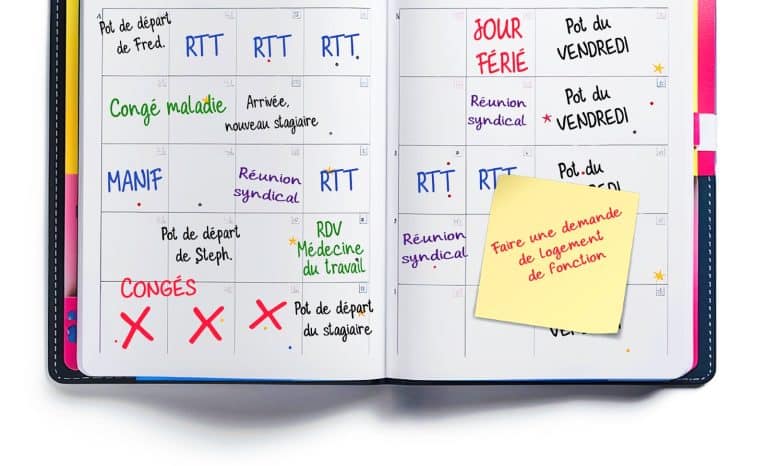 Pot de départ
de Fred.
RTT
RTT
RTT
Congé maladie
Arrivée,
nouveau stagiaire
MANIF
Réunion
syndical
RTT
Pot de départ
de Steph.
RDV
Médecine
du travail
CONGÉS
Pot de départ
du stagiaire
JOUR
FÉRIÉ
Pot du
VENDREDI
Réunion
syndical
Pot du
VENDREDI
RTT
RTT
Pot du
VENDREDI
Réunion
syndical
Faire une demande
de logement
de fonction
VENDREDI